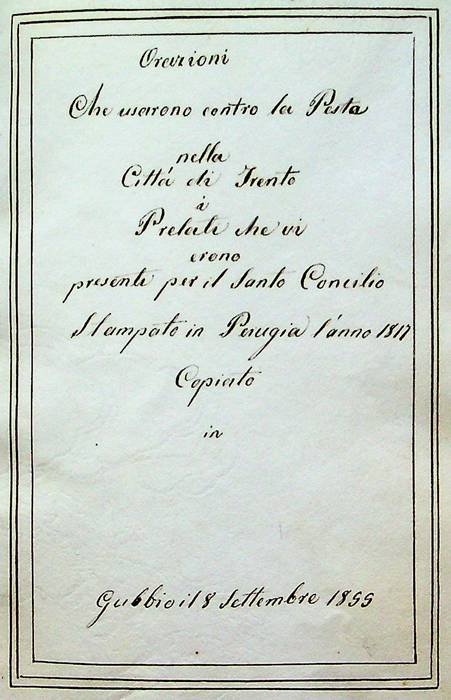 Orazioni
Che usarono contro la Peste
nella
Cittá di Trento
i
Prelati che vi
erono
presenti per il Santo Concilio
Stampato in Perugia l'anno 1817
Copiato
in
Gubbio il 8 Settembre 1855